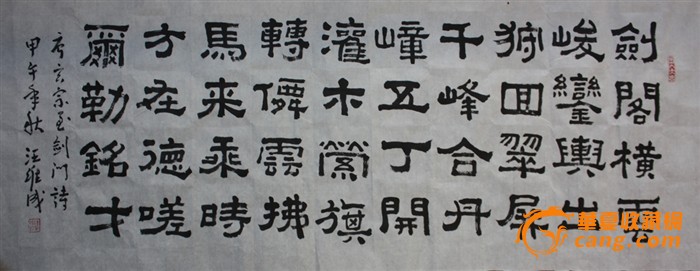 劍閣橫雲
峻鑾輿出
狩回翠屏
千峰合丹
嶂五丁開
灌木縈旗
轉僊雲拂
馬來乘時
方在德嗟
爾勒銘才
唐玄宗至剑门詩
甲午年秋 汪維成
華夏收藏網
cang.com